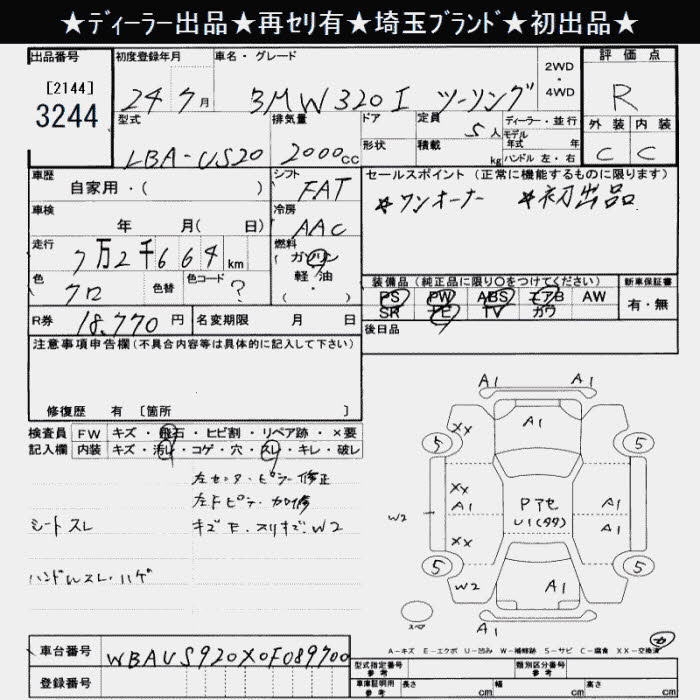 ★ディーラー出品★再セリ有★埼玉ブランド★初出品★
出品番号 初度登録年月 車名・グレード 2WD・4WD 評価点
[2144]
3244 24 7月 BMW 320I ツーリング R
型式 排気量 ドア 定員 5人 ディーラー・並行 外装 内装
モデル年式 年
LBA-US20 2000cc 形状 積載 kg ハンドル 左・右 C C
車歴 シフト FAT セールスポイント (正常に機能するものに限ります)
自家用・( ) ★ワンオーナー ★初出品
車検 冷房
年 月( 日) AAC
走行 燃料
7万2千664km ガソリン
軽・油
・( )
色 色替 色コード 装備品 (純品に限り○をつけてください) 新車保証書
クロ ? PS PW ABS エアB AW 有・無
SR TV カワ
R券 18,770円 名変期限 月 日 後日品
注意事項申告欄(不具合内容等は具体的に記入して下さい)
修復歴 有 [箇所 ]
検査員 FW キズ・飛石・ヒビ割・リペア跡・×要
記入欄 内装 キズ・汚れ・コゲ・穴・スレ・キレ・破レ
左センタ・ピラー修正
シートスレ
ハンドルスレ・ハゲ
A1 A1
XX A1
5 5
XX
A1 Pアセ A1
W2 A1
XX
5 5
W2 A1
スペア A1
A-キズ E-エクボ U-凹み W-補修跡 S-サビ C-腐食 XX-交換済
車台番号 WBAUS920X0F089700 型式指定番号 参考 類別区分番号 参考
登録番号 車庫証明用 参考 長さ cm 幅 cm 高さ cm